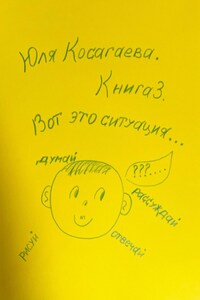 Юля Косагаева.
Книга 3.
Вот это ситуация...
думай
???...
рассуждай
рисуй
отвечай